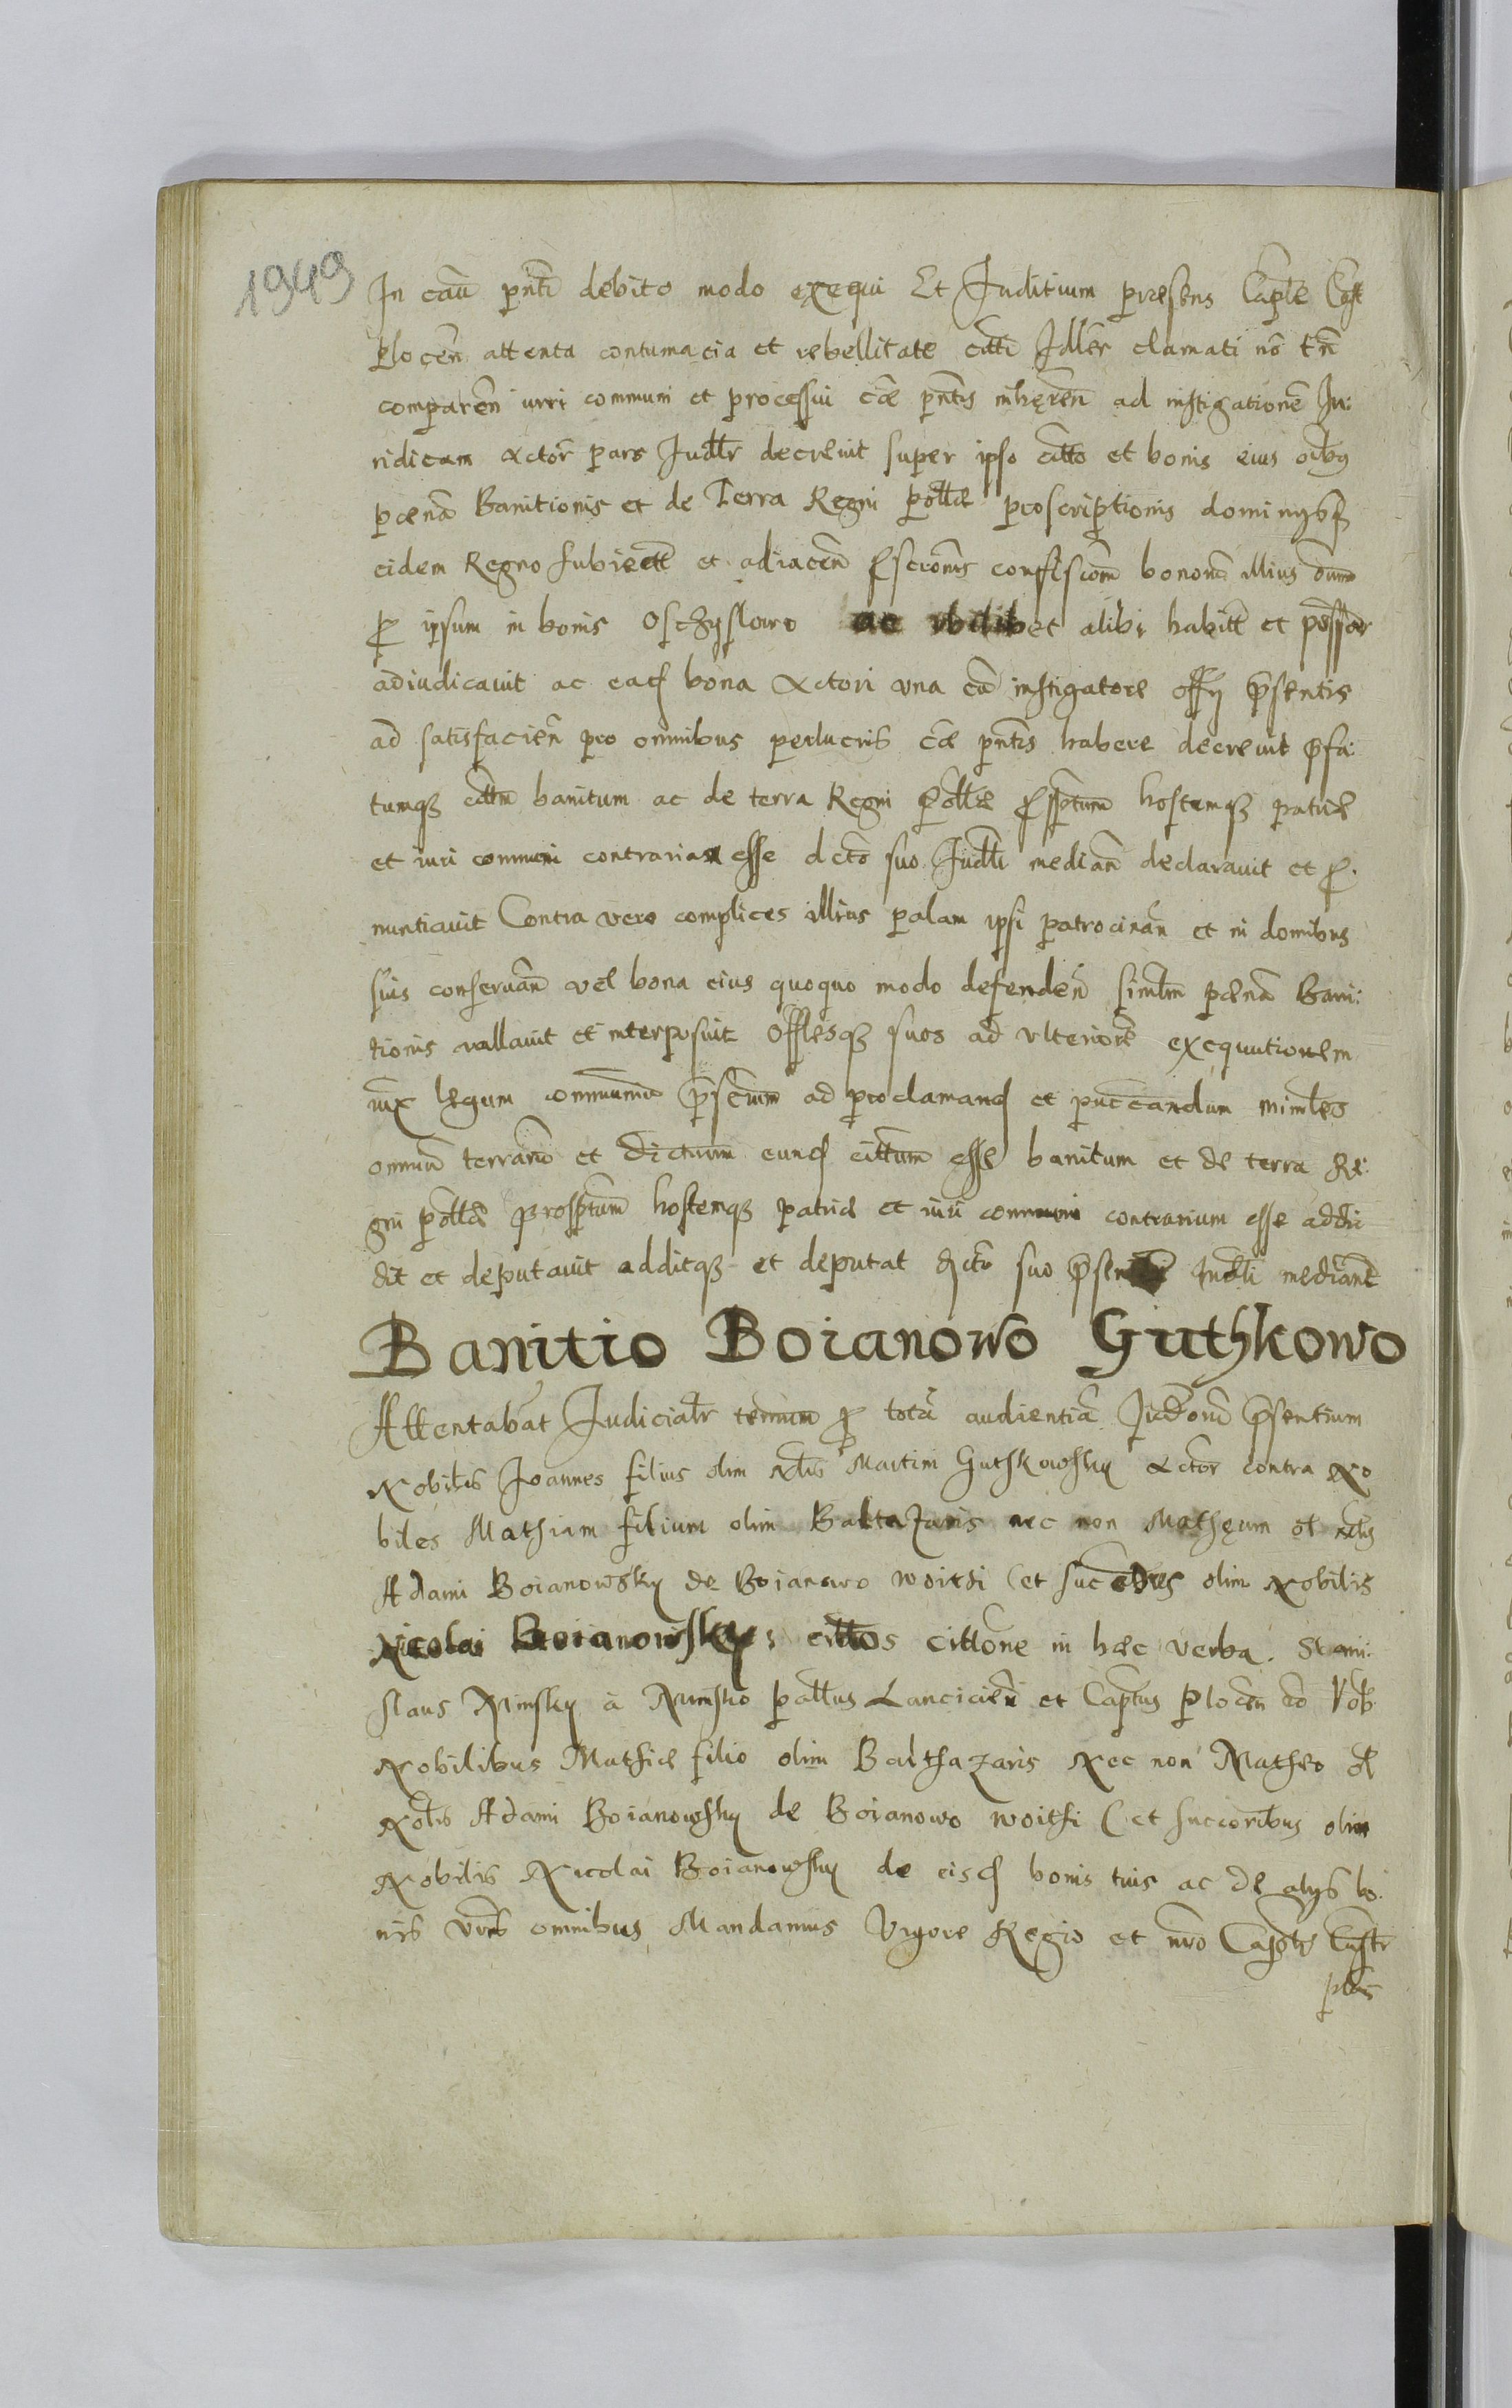 1949
In cau̅ pn̅ti debito modo exequi Et Juditium præsens Capt̅le Cast̅
Plocen̅ attenta contumacia et rebellitate citt̅i Jdl̅er clamati no̅ tn̅
comparen̅ iuri communi et processui cæ̅ pn̅tis inhęren̅ ad instigatione̅ Ju:
ridicam Actor̅ pars Judlr̅ decrevit super ipso citt̅o et bonis eius oi̅bq
pæna̅ Banitionis et de Terra Regni Poll̅æ proscriptionis dominysq3
eidem Regno subiectt̅ et adiacen̅ confiscom̅ bonor̅u illius
p ipsum in bonis Oschyslowo ac ubilibet alibi habitt̅ et possess̅
adiudicavit ac ead bona Actori una cu̅ instigatore offy p̅sentis
ad satisfacien̅ pro omnibus perlucris cæ̅ pn̅tis habere decrevit p̅fa:
tumq3 citt̅u banitum ac de terra Regni Poll̅æ p̅scptum hostemq3 patriæ
et iuri communi contrarium esse dcto̅ suo Judl̅i median̅ declaravit et p:
nuntiavit Contra vero complices illius palam ipsi patrocinan̅ et in domibus
suis conservan̅ vel bona eius quoquo modo defenden̅ simlm̅ pæna̅ Bani:
tionis vallavit et interposuit Offlesq3 suos ad ulteriore̅ exequutionem
iux legum communiu̅ p̅scrium̅ ad proclamand et pu̅ccandum miml̅es
omniu̅ terraru̅ et dictum̅ eund citt̅um esse banitum et de terra Re:
gni Poll̅æ prosptum̅ hostemq3 patriæ et iuri communi contrarium esse addi
dit et deputavit additq3 et deputat dcto̅ suo p̅senti Judl̅i mediant̅
Banitio Boianowo Guthkowo
Attentabat Judicialr̅ termin̅ p tota̅ audientia̅ Judior̅u p̅sentium
Nobilis Joannes filius olim Nlis̅ Martini Guthkowsky Actor contra No
biles Mathiam filium olim Baltazaris nec non Mathęum ol̅ nlis̅
Adami Boianowsky de Boianowo woithi (et succores olim Nobilis
Nicolai Boianowsky: citt̅os citt̅one in hæc verba. Stani:
slaus Minsky à Minsko Pall̅us Lancicien̅ et Captus̅ Plocen̅ Vob̅
Nobilibus Mathiæ filio olim Balthazaris Nec non Matheo ol̅
Nobl̅is Adami Boianowsky de Boianowo woithi (et succoribus olim
Nobilis Nicolai Boianowsky de eisd bonis tuis ac de alys bo:
nis vr̅is omnibus Mandamus Vigore Regio et nr̅o Capt̅li Castr̅